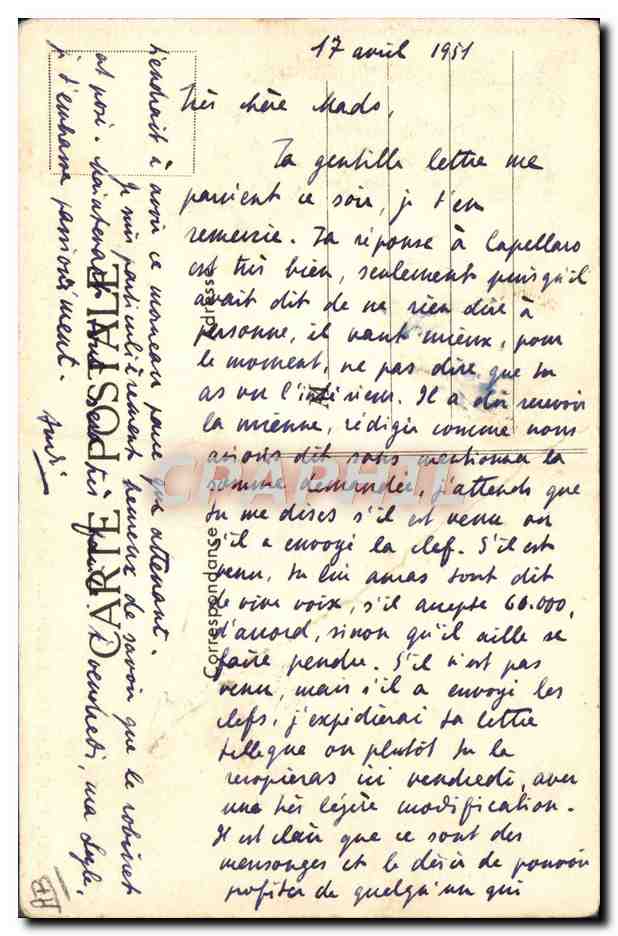 17 avril 1951
Très chère Mado,
Ta gentille lettre me
parvient ce soir, je t'en
remercie. Ta réponse à Capellaro
est très bien, seulement puisqu'il
avait dit de ne rien dire à
personne, il vaut mieux, pour
le moment, ne pas dire que tu
as vu l'intérieur. Il a dû recevoir
la mienne, rédigée comme nous
avions dit sans mentionner la
somme demandée, j'attends que
tu me dises s'il est venu ou
s'il a envoyé la clef. S'il est
venu, tu lui auras tout dit
de vive voix, s'il accepte 60.000,
d'accord, sinon qu'il aille se
faire pendre. S'il n'est pas
venu, mais s'il a envoyé les
clefs, j'expédierai ta lettre
telle que ou plutôt tu la
recopieras ici vendredi, avec
une très légère modification.
Il est clair que ce sont des
mensonges et le désir de pouvoir
profiter de quelqu'un qui
tiendrait à avoir ce morceau parce que attenant.
Je suis particulièrement heureux de savoir que le robinet
est posé. Maintenant tout sera très à vendredi, ma
je t'embrasse passionément.
CARTE POSTALE
Correspondance
Adresse
M
CPAPHIL